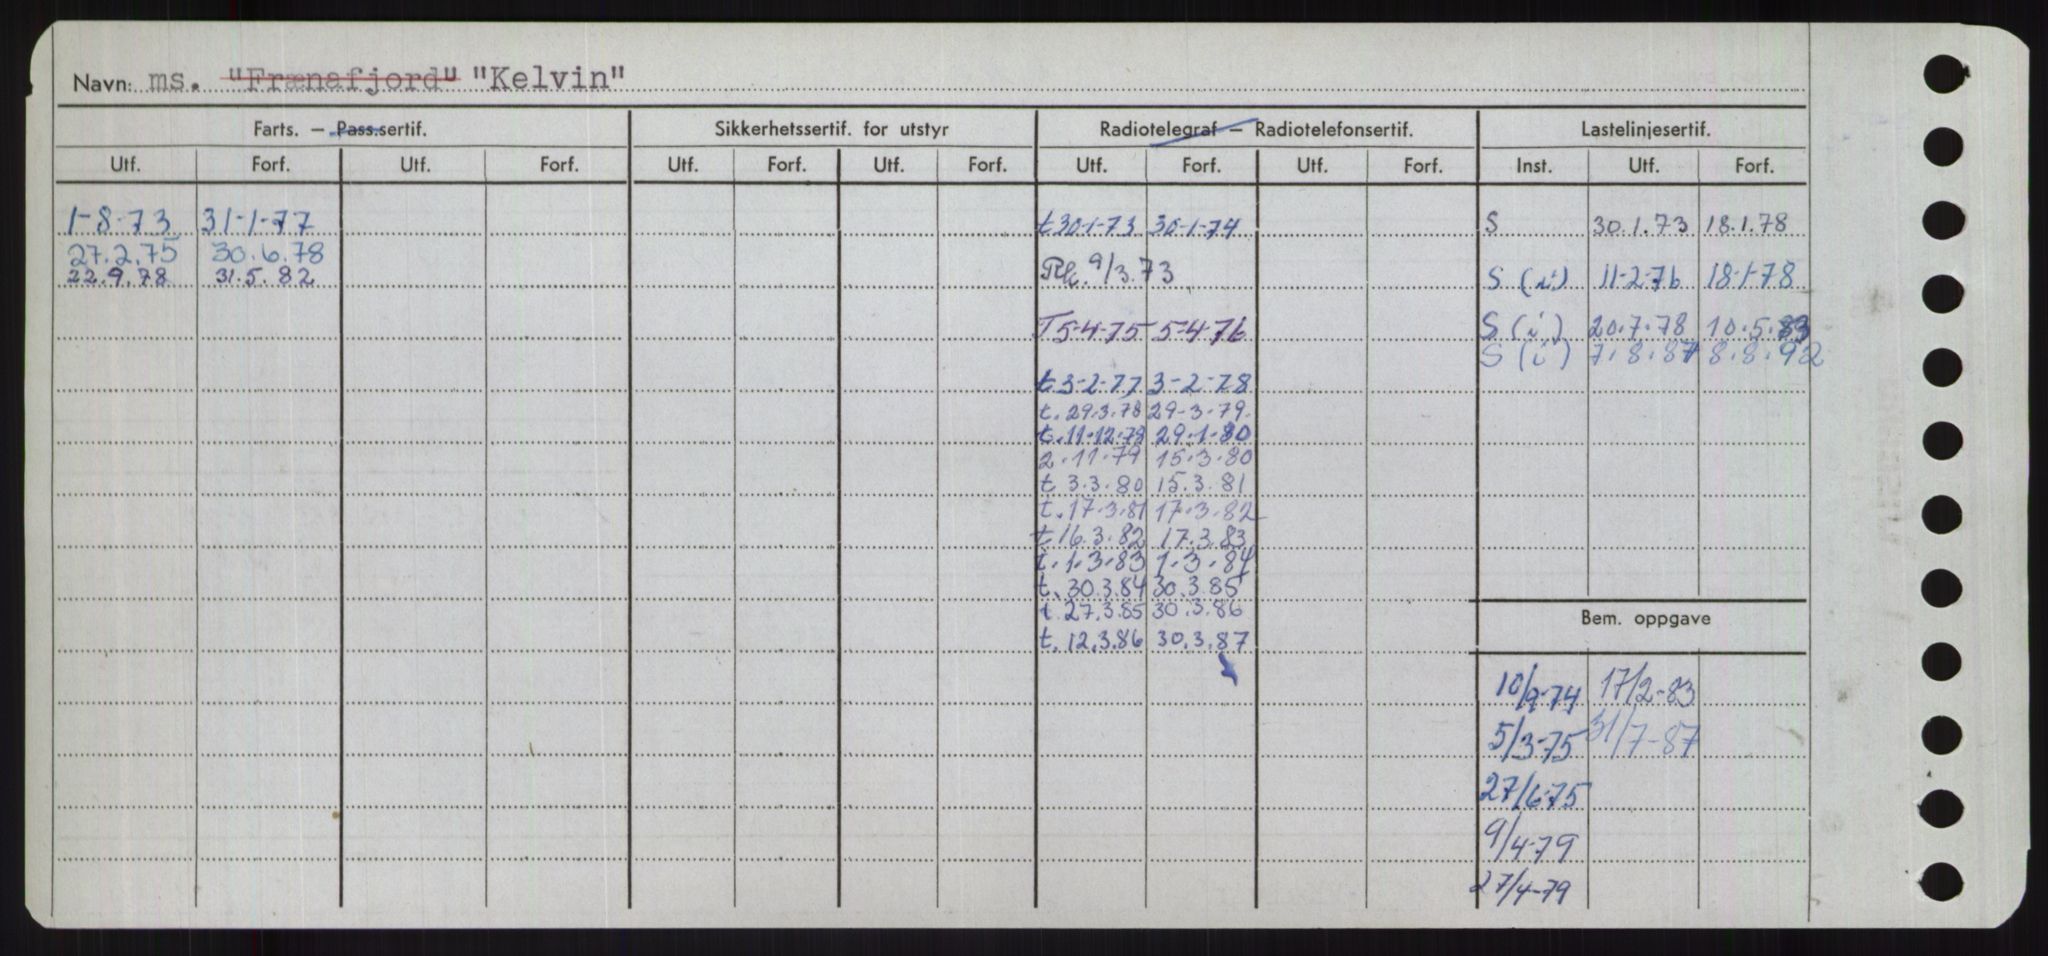 Navn: ms. "Frænafjord" "Kelvin"
Farts. — Pass.sertif. Sikkerhetssertif. for utstyr Radiotelegraf — Radiotelefonsertif. Lastelinjesertif.
Utf. Forf. Utf. Forf. Utf. Forf. Utf. Forf. Utf. Forf. Utf. Forf. Inst. Utf. Forf.
1-8-73 31-1-77 t 30-1-73 30-1-74 S 30.1.73 18.1.78
27.2.75 30.6.78
22.9.78 31.5.82 9/3.73 S (i) 11-2-76 18-1-78
T 5-4-75 5-4-76 S (i) 20.7.78 10.5.83
S (i) 7.8.87 8.8.92
t. 3-2-77 3-2-78
t. 29.3.78 29-3-79.
t. 11.12.78 29.1.80
2.11.79 15.3.80
t. 3.3.80 15.3.81
t. 17.3.81 17.3.82
t. 16.3.82 17.3.83
t. 1.3.83 1.3.84
t. 30.3.84 30.3.85
t. 27.3.85 30.3.86
Bem. oppgave
t. 12.3.86 30.3.87
10/9-74 17/2-83
5/3-75 31/7-87
27/6-75
9/4-79
27/4-79